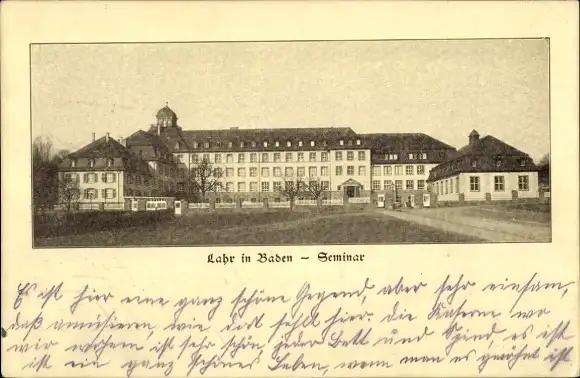 Lahr in Baden – Seminar
Es ist hier eine ganz schöne Gegend, aber sehr einsam,
daß amüsieren wie dort fehlt hier. die Kaserne wo
wir wohnen ist sehr schön jeder Bett und Spind, es ist
ist ein ganz schönes Leben, wenn man es gewöhnt ist